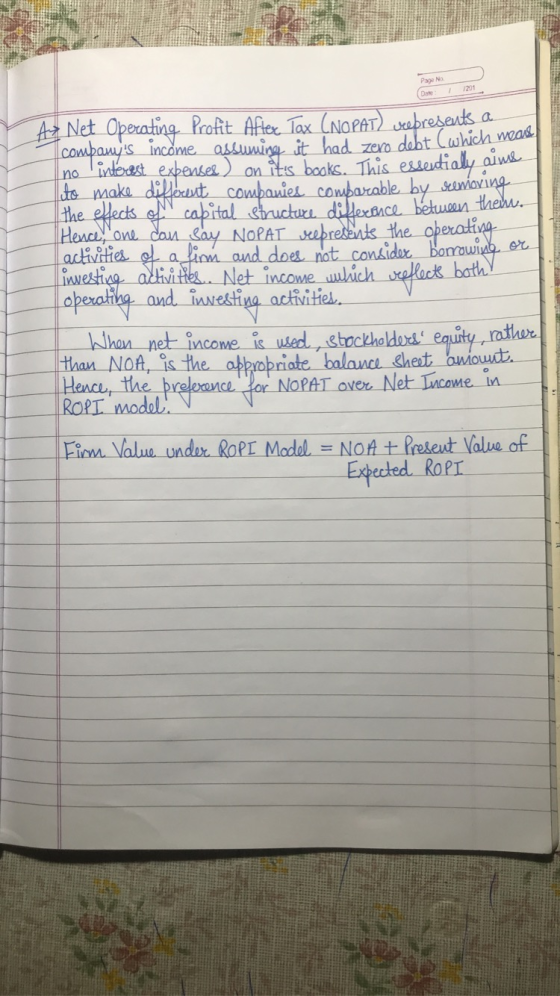 Page No.
Date: / /201
A→ Net Operating Profit After Tax (NOPAT) represents a
company's income assuming it had zero debt (which means
no interest expenses) on its books. This essentially aims
to make different companies comparable by removing
the effects of capital structure difference between them.
Hence, one can say NOPAT represents the operating
activities of a firm and does not consider borrowing or
investing activities. Net income which reflects both
operating and investing activities.
When net income is used, stockholders' equity, rather
than NOA, is the appropriate balance sheet amount.
Hence, the preference for NOPAT over Net Income in
ROPI model.
Firm Value under ROPI Model = NOA + Present Value of
Expected ROPI